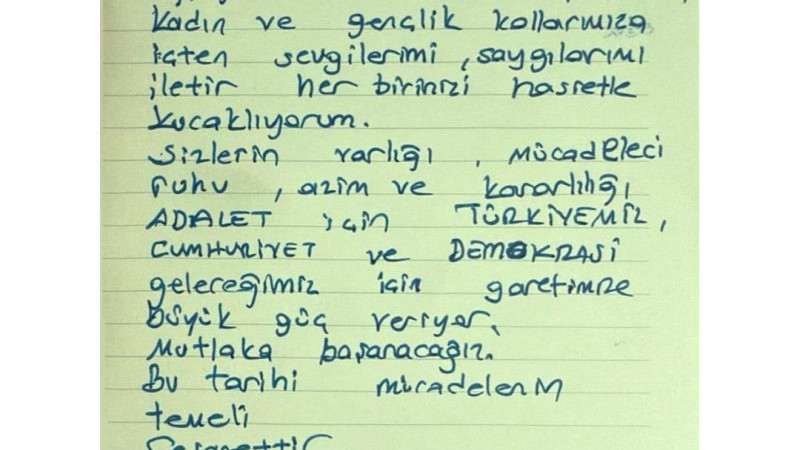 kadın ve gençlik kollarımıza
içten sevgilerimi, saygılarımı
iletir her birinizi hasretle
kucaklıyorum.
Sizlerin varlığı, mücadeleci
ruhu, azim ve kararlılığı
ADALET için TÜRKİYEMİZ,
CUMHURİYET ve DEMOKRASİ
geleceğimiz için gayretimize
büyük güç veriyor.
Mutlaka başaracağız.
Bu tarihi mücadelenin
temeli